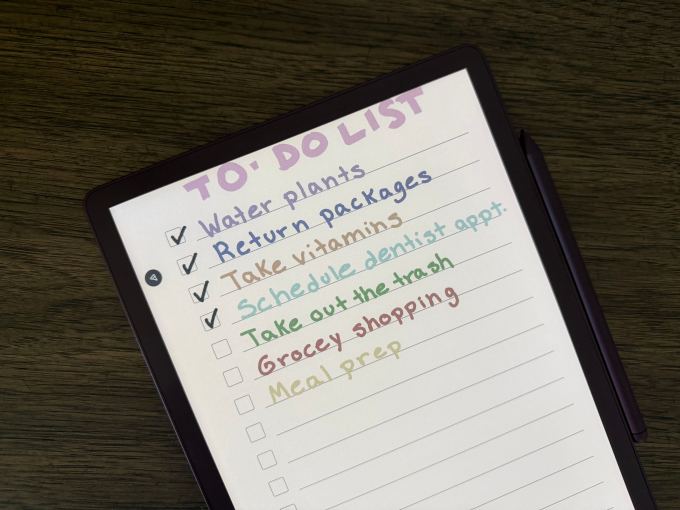 TO-DO LIST
Water plants
Return packages
Take vitamins
Schedule dentist appt.
Take out the trash
Grocey shopping
Meal prep